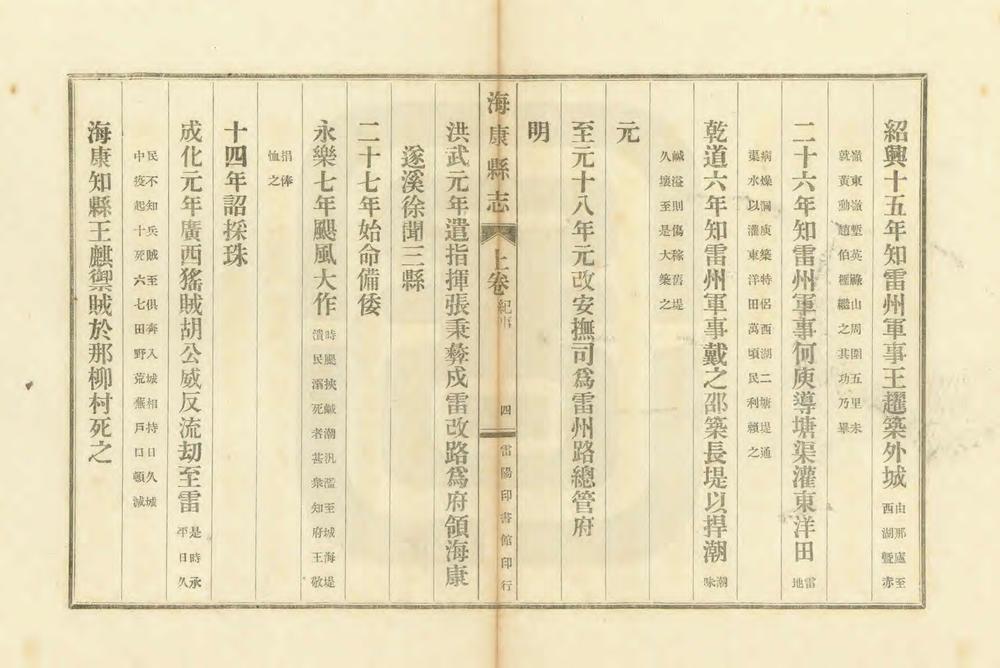 紹興十五年知雷州軍事王趯築外城由那盧至西湖暨赤
嶺東溢塹英祿山周圍五里未
就黃勳趙伯檉繼之其功乃畢
二十六年知雷州軍事何庾導塘渠灌東洋田雷地
病燥涸庾築特侶西湖二塘堤通
渠水以灌東洋田萬頃民利賴之
乾道六年知雷州軍事戴之邵築長堤以捍潮潮味
鹹溢則傷稼舊堤
久壞至是大築之
元
至元十八年元改安撫司爲雷州路總管府
明
海康縣志 上卷 紀事 四 雷陽印書館印行
洪武元年遣指揮張秉彜戍雷改路爲府領海康
遂溪徐聞三縣
二十七年始命備倭
永樂七年颶風大作時颶挾鹹潮汎濫至城海堤潰民溺死者甚衆知府王敬
捐俸
恤之
十四年詔採珠
成化元年廣西猺賊胡公威反流刧至雷是時承平日久
民不知兵賊至俱奔入城相持日久城
中疫起十死六七田野荒蕪戶口頓減
海康知縣王麒禦賊於那柳村死之